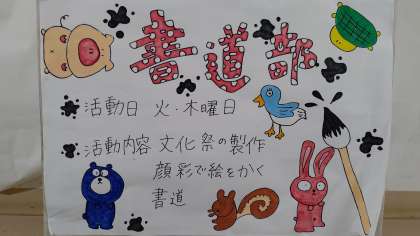 書道部
活動日 火・木曜日
活動内容 文化祭の製作
顔彩で絵をかく
書道